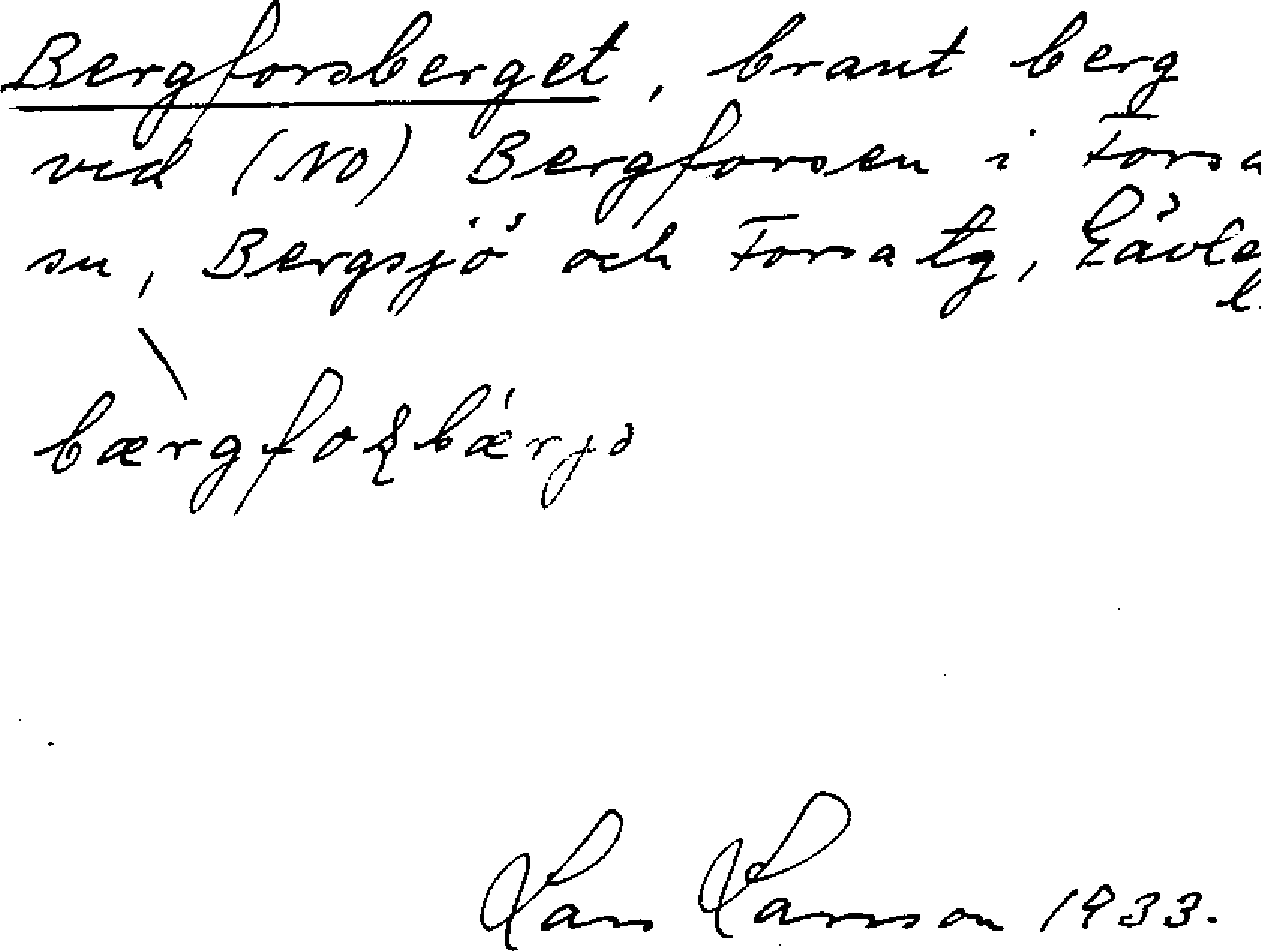 Bergforsberget, brant berg
ved (NO) Bergforsen i Forsa
sn, Bergsjö och Forsa tg, Gävle
l.
Lars Larsson 1933.